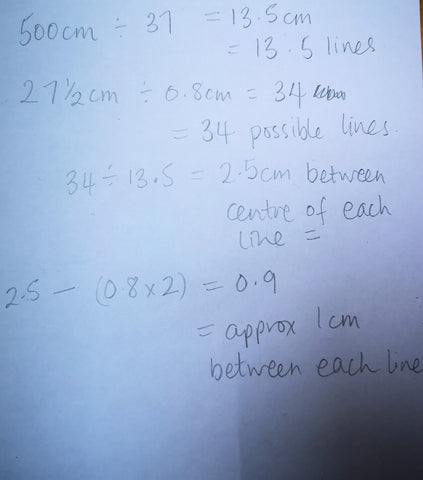 500cm ÷ 37 = 13.5cm
= 13.5 lines
27½cm ÷ 0.8cm = 34
= 34 possible lines.
34 ÷ 13.5 = 2.5cm between
centre of each
line =
2.5 - (0.8x2) = 0.9
= approx 1cm
between each line